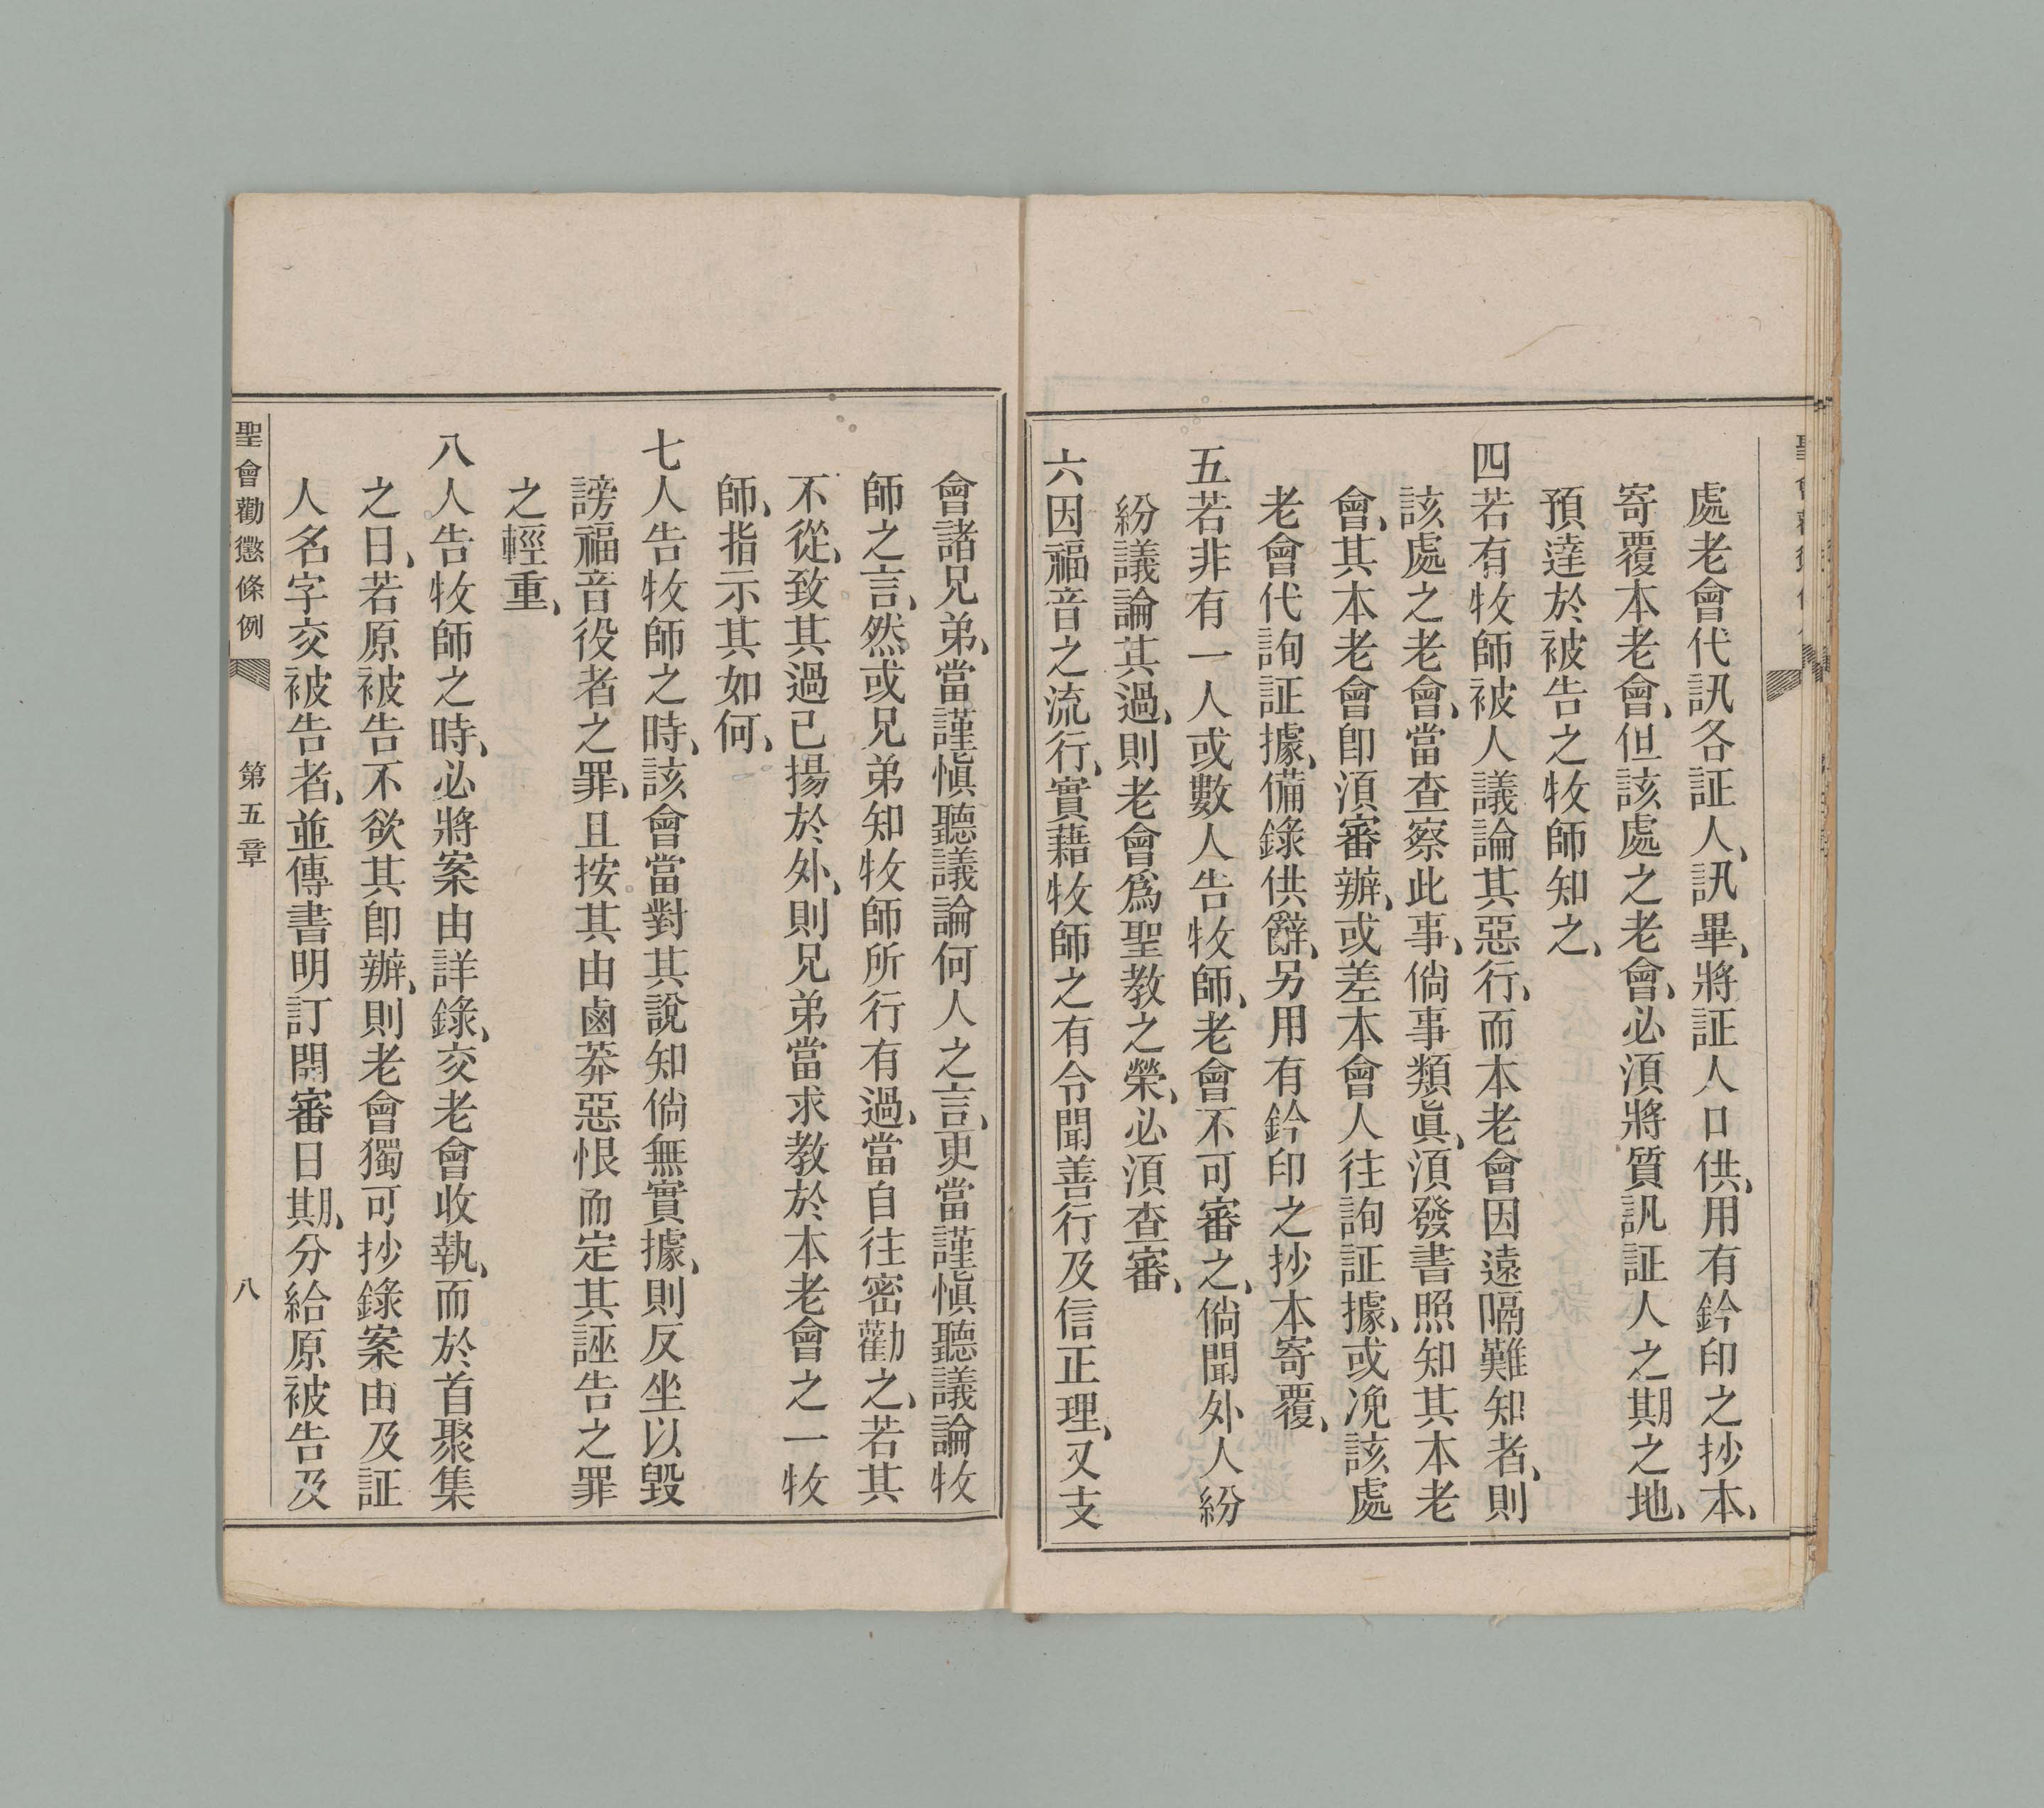 處老會代訊各証人、訊畢、將証人口供、用有鈐印之抄本、
寄覆本老會、但該處之老會、必須將質訊証人之期之地、
預達於被告之牧師知之、
四若有牧師被人議論其惡行、而本老會因遠隔難知者、則
該處之老會、當查察此事、倘事類眞、須發書照知其本老
會、其本老會卽須審辦、或差本會人往詢証據、或凂該處
老會代詢証據、備錄供辭、另用有鈐印之抄本寄覆、
五若非有一人或數人告牧師、老會不可審之、倘聞外人紛
紛議論其過、則老會爲聖教之榮、必須查審、
六因福音之流行、實藉牧師之有令聞善行及信正理、又支
會諸兄弟、當謹愼聽議論何人之言、更當謹愼聽議論牧
師之言、然或兄弟知牧師所行有過、當自往密勸之、若其
不從、致其過已揚於外、則兄弟當求教於本老會之一牧
師、指示其如何、
七人告牧師之時、該會當對其說知倘無實據、則反坐以毀
謗福音役者之罪、且按其由鹵莽惡恨而定其誣告之罪
之輕重、
八人告牧師之時、必將案由詳錄、交老會收執、而於首聚集
之日、若原被告不欲其卽辦、則老會獨可抄錄案由及証
人名字交被告者、並傳書明訂開審日期、分給原被告及
聖會勸懲條例 第五章 八